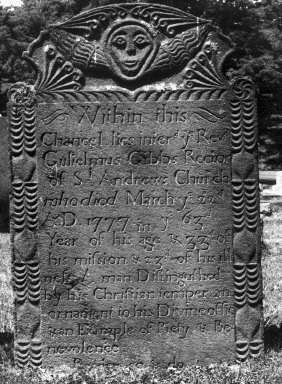 Within this
Chancel lies inter.d yͤ Revᵈ
Gulielmus Gibbs Rector
of Sᵗ Andrews Church
who died March yͤ 22ᵈ
A:D. 1777 in yͤ 63ᵈ
Year of his age & 33ᵈ of
his mission & 22ᵈ of his ill
ness a man Distinguished
by his Christian temper an
ornament to his Divine office
& an Example of Piety & Be
nevolence